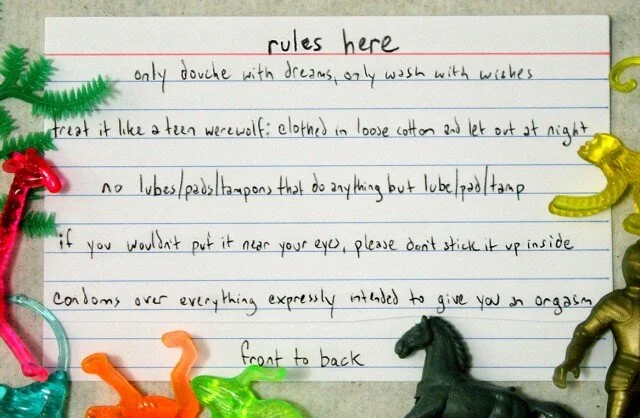 rules here
only douche with dreams, only wash with wishes
treat it like a teen werewolf: clothed in loose cotton and let out at night
no lubes/pads/tampons that do anything but lube/pad/tamp
if you wouldn't put it near your eyes, please don't stick it up inside
condoms over everything expressly intended to give you an orgasm
front to back